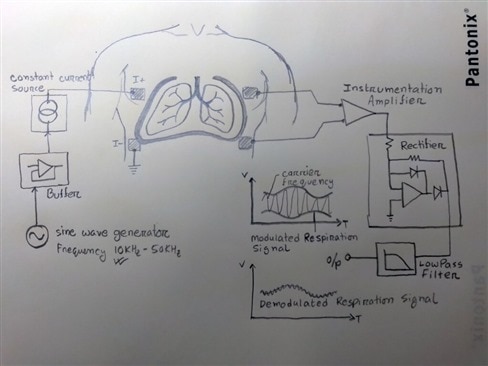 Pantonix®
constant current
source
I+
I-
Buffer
sine wave generator
Frequency 10KHz - 50KHz
Instrumentation
Amplifier
Rectifier
V
carrier
frequency
T
Modulated Respiration
Signal
O/p
Low Pass
Filter
V
Demodulated Respiration Signal
T